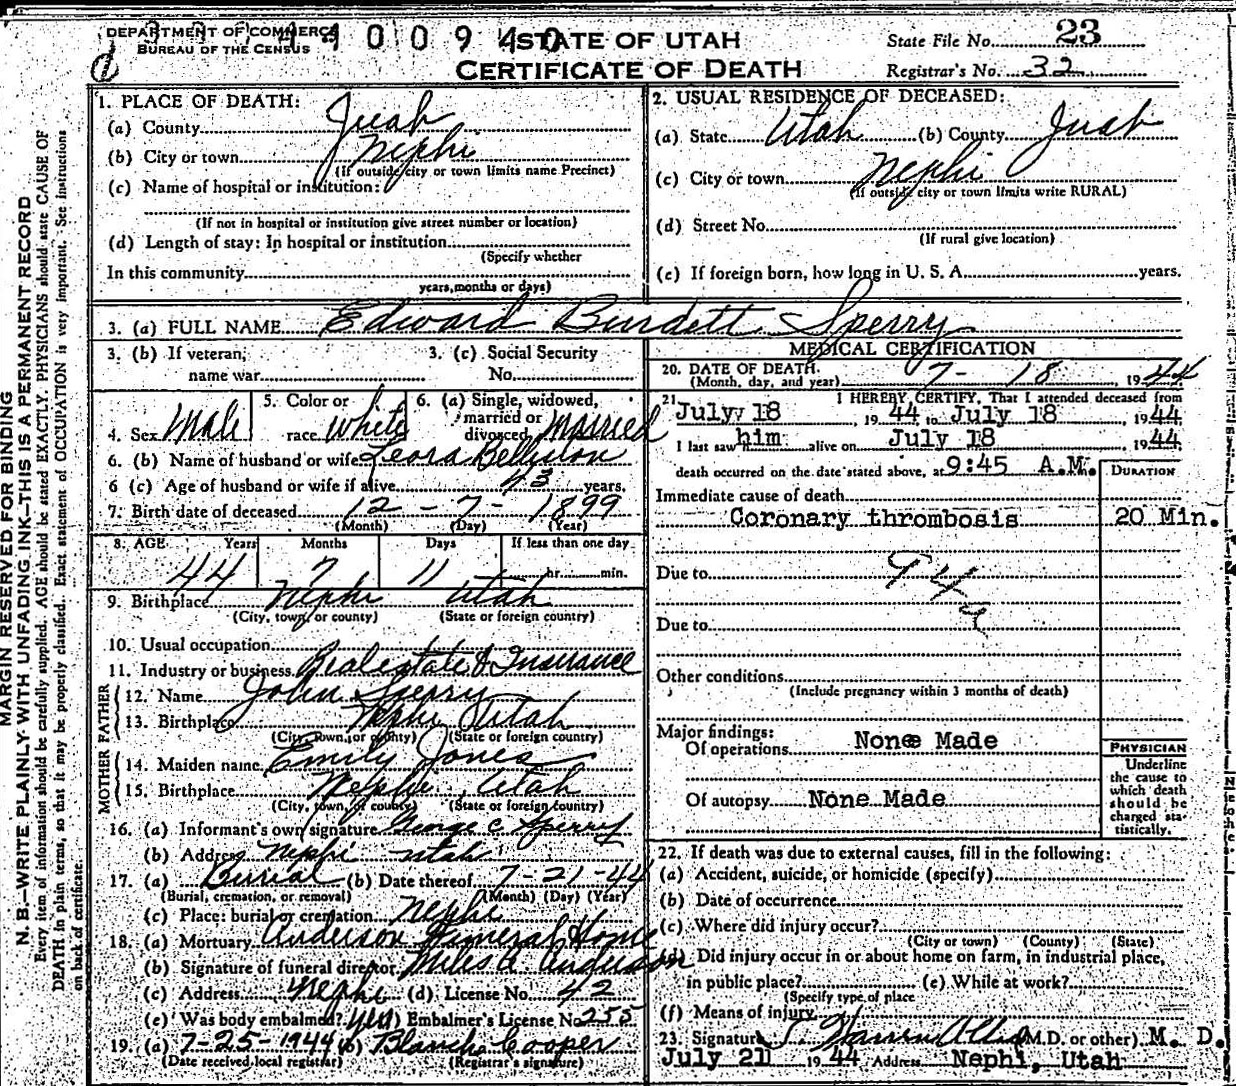 DEPARTMENT OF COMMERCE
BUREAU OF THE CENSUS
100940
STATE OF UTAH
CERTIFICATE OF DEATH
State File No. 23
Registrar's No. 32
MARGIN RESERVED FOR BINDING
N. B.—WRITE PLAINLY WITH UNFADING INK—THIS IS A PERMANENT RECORD
Every item of information should be carefully supplied. AGE should be stated EXACTLY. PHYSICIANS should state CAUSE OF
DEATH in plain terms, so that it may be properly classified. Exact statement of OCCUPATION is very important. See instructions
on back of certificate.
1. PLACE OF DEATH:
(a) County Juab
(b) City or town Nephi
(If outside city or town limits name Precinct)
(c) Name of hospital or institution:
(If not in hospital or institution give street number or location)
(d) Length of stay: In hospital or institution
(Specify whether
In this community
years, months or days)
2. USUAL RESIDENCE OF DECEASED:
(a) State Utah (b) County Juab
(c) City or town Nephi
(If outside city or town limits write RURAL)
(d) Street No.
(If rural give location)
(e) If foreign born, how long in U. S. A. years.
3. (a) FULL NAME Edward Burdett Sperry
3. (b) If veteran, name war
3. (c) Social Security No.
4. Sex Male
5. Color or race white
6. (a) Single, widowed, married or divorced Married
6. (b) Name of husband or wife Leora Bellison
6 (c) Age of husband or wife if alive 43 years.
7. Birth date of deceased 12 - 7 - 1899
(Month) (Day) (Year)
8. AGE Years Months Days If less than one day
44 7 11 hr. min.
9. Birthplace Nephi Utah
(City, town, or county) (State or foreign country)
10. Usual occupation
11. Industry or business Real estate & Insurance
FATHER
12. Name John Sperry
13. Birthplace Nephi Utah
(City, town, or county) (State or foreign country)
MOTHER
14. Maiden name Emily Jones
15. Birthplace Nephi, Utah
(City, town, of county) (State or foreign country)
16. (a) Informant's own signature George C Sperry
(b) Address Nephi Utah
17. (a) Burial (b) Date thereof 7-21-44
(Burial, cremation, or removal) (Month) (Day) (Year)
(c) Place: burial or cremation Nephi
18. (a) Mortuary Anderson Funeral Home
(b) Signature of funeral director Miles A. Anderson
(c) Address Nephi (d) License No. 42
(e) Was body embalmed? yes (f) Embalmer's License No. 255
19. (a) 7-25-1944 (b) Blanche Cooper
(Date received local registrar) (Registrar's signature)
MEDICAL CERTIFICATION
20. DATE OF DEATH
(Month, day, and year) 7- 18 , 1944
21. I HEREBY CERTIFY, That I attended deceased from
July 18 , 1944 to July 18 1944
I last saw him alive on July 18 1944
death occurred on the date stated above, at 9:45 A.M.
DURATION
Immediate cause of death
Coronary thrombosis 20 Min.
Due to 94a
Due to
Other conditions
(Include pregnancy within 3 months of death)
Major findings:
Of operations None Made
Of autopsy None Made
PHYSICIAN
Underline
the cause to
which death
should be
charged sta-
tistically.
22. If death was due to external causes, fill in the following:
(a) Accident, suicide, or homicide (specify)
(b) Date of occurrence
(c) Where did injury occur?
(City or town) (County) (State)
(d) Did injury occur in or about home on farm, in industrial place,
in public place? (e) While at work?
(Specify type of place
(f) Means of injury
23. Signature (M.D. or other) M. D.
July 21 1944 Address Nephi, Utah